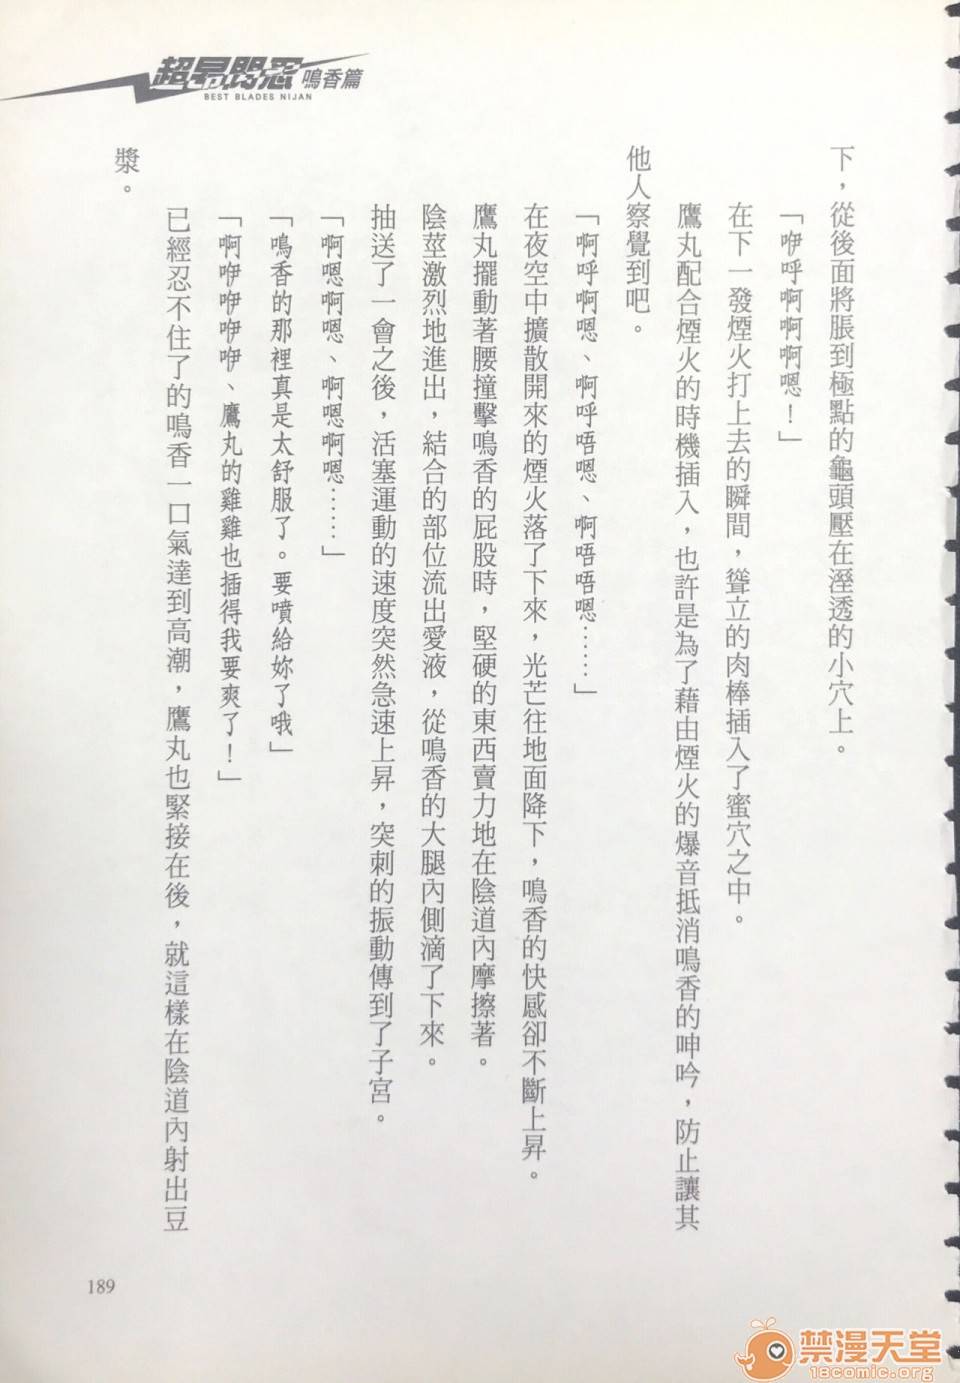 超昂閃忍 鳴香篇
BEST BLADES NIJAN
下，從後面將脹到極點的龜頭壓在溼透的小穴上。
「咿呼啊啊啊嗯！」
在下一發煙火打上去的瞬間，聳立的肉棒插入了蜜穴之中。
鷹丸配合煙火的時機插入，也許是為了藉由煙火的爆音抵消鳴香的呻吟，防止讓其
他人察覺到吧。
「啊呼啊嗯、啊呼唔嗯、啊唔唔嗯……」
在夜空中擴散開來的煙火落了下來，光芒往地面降下，鳴香的快感卻不斷上昇。
鷹丸擺動著腰撞擊鳴香的屁股時，堅硬的東西賣力地在陰道內摩擦著。
陰莖激烈地進出，結合的部位流出愛液，從鳴香的大腿內側滴了下來。
抽送了一會之後，活塞運動的速度突然急速上昇，突刺的振動傳到了子宮。
「啊嗯啊嗯、啊嗯啊嗯……」
「鳴香的那裡真是太舒服了。要噴給妳了哦」
「啊咿咿咿咿、鷹丸的雞雞也插得我要爽了！」
已經忍不住了的鳴香一口氣達到高潮，鷹丸也緊接在後，就這樣在陰道內射出豆
漿。
189
禁漫天堂
18comic.org